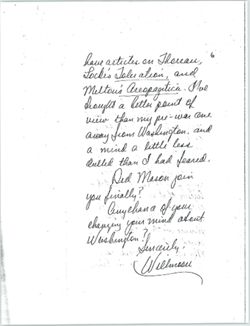 6
have articles on Thoreau,
Locke's Toleration, and
Milton's Areopagitica. I've
brought a better point of
view than my pre-war one
away from Washington, and
a mind a little less
dulled than I had feared.
Did Mason join
you finally?
Any chance of your
changing your mind about
Washington?
Sincerely,
Willmoore